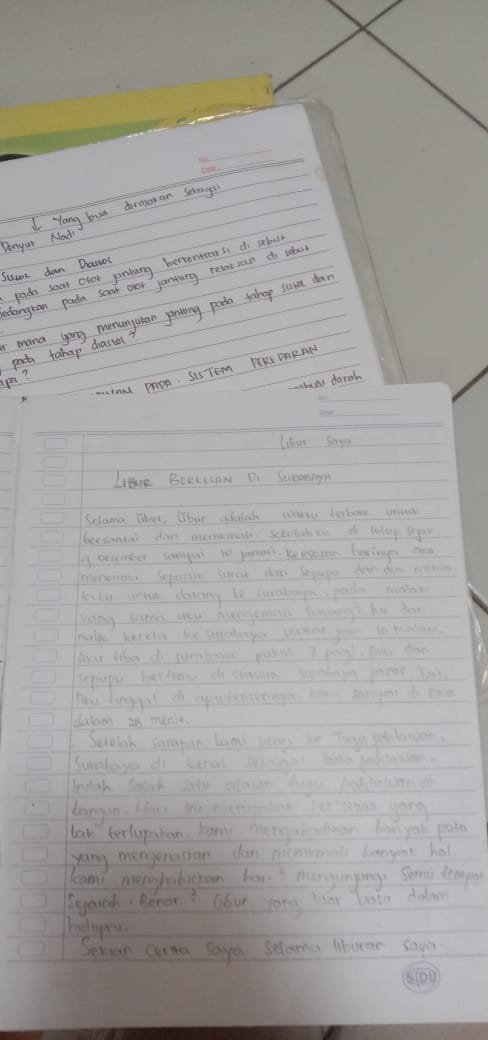 ↓ Yang bisa dirasakan sebagai
Denyut Nadi
Sistol dan Diastol
pada saat otot jantung berkontraksi di sebut
sedangkan pada saat otot jantung relaksasi di sebut
mana yang menunjukan jantung pada tahap sistol dan
pada tahap diastol?
apa?
PADA SISTEM PEREDARAN
darah
Libur Saya
LIBUR BERKESAN Di SURABAYA
Selama libur, libur adalah waktu terbaik untuk
bersantai dan menikmati. sekolah ku di tutup
9 Desember sampai 10 januari. keesokan harinya aku
menerima sepucuk surat dari sepupu dan dia
ku untuk datang ke surabaya. pada malam
yang sama aku mengemasi barang² ku dan
naik kereta ke surabaya jam 10 malam.
Aku tiba di surabaya pukul 7 pagi. Aku dan
sepupu bertemu di stasiun surabaya pasar Turi.
Aku tinggal di apartemennya. kami sampai di sana
dalam 25 menit.
Setelah sarapan kami pergi ke Tugu pahlawan.
Surabaya di kenal sebagai kota pahlawan.
Inilah salah satu alasan tugu pahlawan di
bangun. Hari ini merupakan yang
tak terlupakan. kami mengabadikan banyak poto
yang mengesankan dan menikmati banyak hal.
kami menghabiskan hari² mengunjungi semu tempat
Sejarah. Benar² libur yang luar biasa dalam
hidupku.
Sekian cerita saya selama liburan saya
SiDU